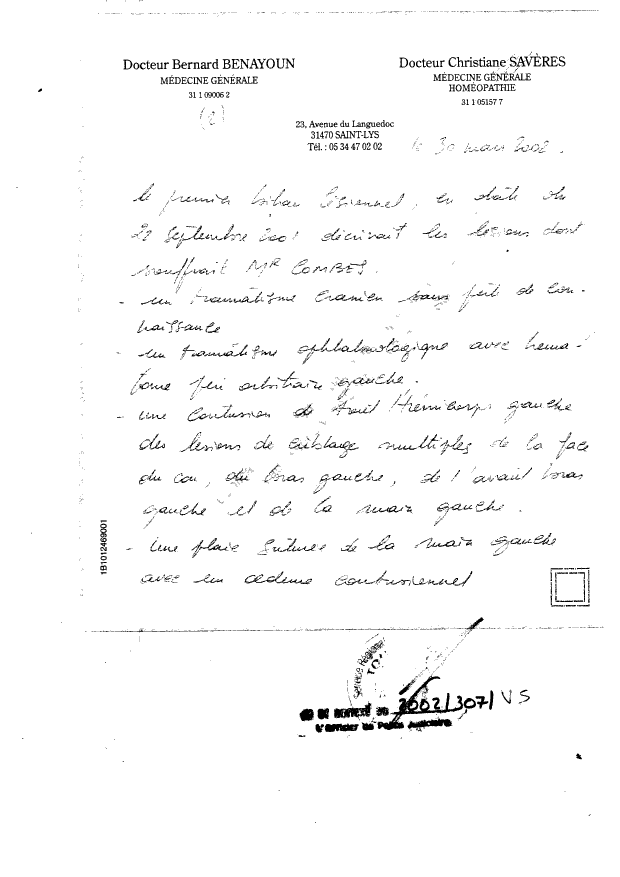 Docteur Bernard BENAYOUN
MÉDECINE GÉNÉRALE
31 1 09006 2
(2)
Docteur Christiane SAVÈRES
MÉDECINE GÉNÉRALE
HOMÉOPATHIE
31 1 05157 7
23, Avenue du Languedoc
31470 SAINT-LYS
Tél. : 05 34 47 02 02
le 30 mars 2002.
le premier bilan lésionnel, en date du
21 Septembre 2001 décrivait les lesions dont
souffrait MR COMBES.
- un traumatisme cranien sans perte de con-
naissance
- un traumatisme ophtalmologique avec hema-
tome peri orbitaire gauche.
- une contusion de tout l'hémicorps gauche
des lesions de criblage multiples de la face
du cou, du bras gauche, de l'avant bras
gauche et de la main gauche.
- une plaie suturée de la main gauche
avec un œdeme contusionnel
1B1012469001
Service Régional
2002/307/VS
L'Officier de Police Judiciaire